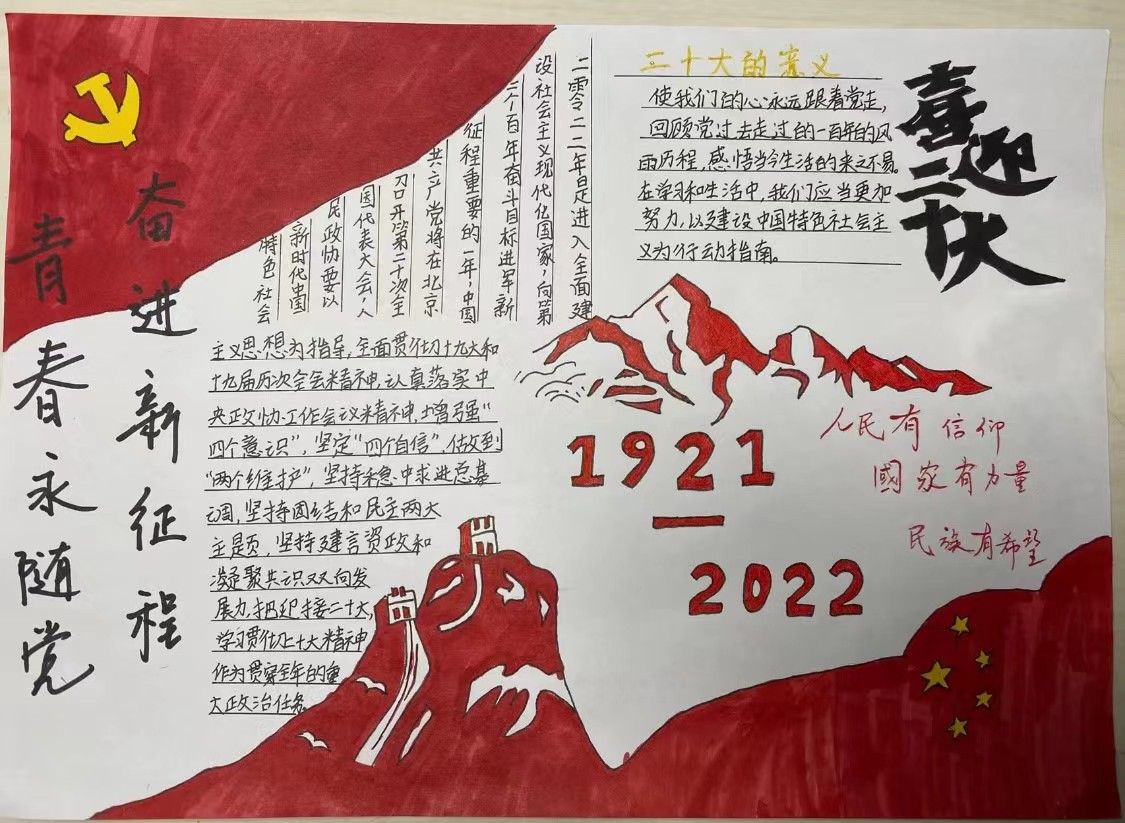 喜迎二十大
奋进新征程
青春永随党
二十大的意义
使我们的心永远跟着党走,
回顾党过去走过的一百年的风
雨历程,感悟当今生活的来之不易。
在学习和生活中,我们应当更加
努力,以建设中国特色社会主
义为行动指南。
二零二二年是进入全面建
设社会主义现代化国家,向第
二个百年奋斗目标进军新
征程重要的一年,中国
共产党将在北京
召开第二十次全
国代表大会,人
民政协要以
新时代中国
特色社会
主义思想为指导,全面贯彻十九大和
十九届历次全会精神,认真落实中
央政协工作会议精神,增强“
四个意识”,坚定“四个自信”,做到
“两个维护”,坚持稳中求进总基
调,坚持团结和民主两大
主题,坚持建言资政和
凝聚共识双向发
展力,把迎接二十大,
学习贯彻二十大精神
作为贯穿全年的重
大政治任务
1921
—
2022
人民有信仰
國家有力量
民族有希望